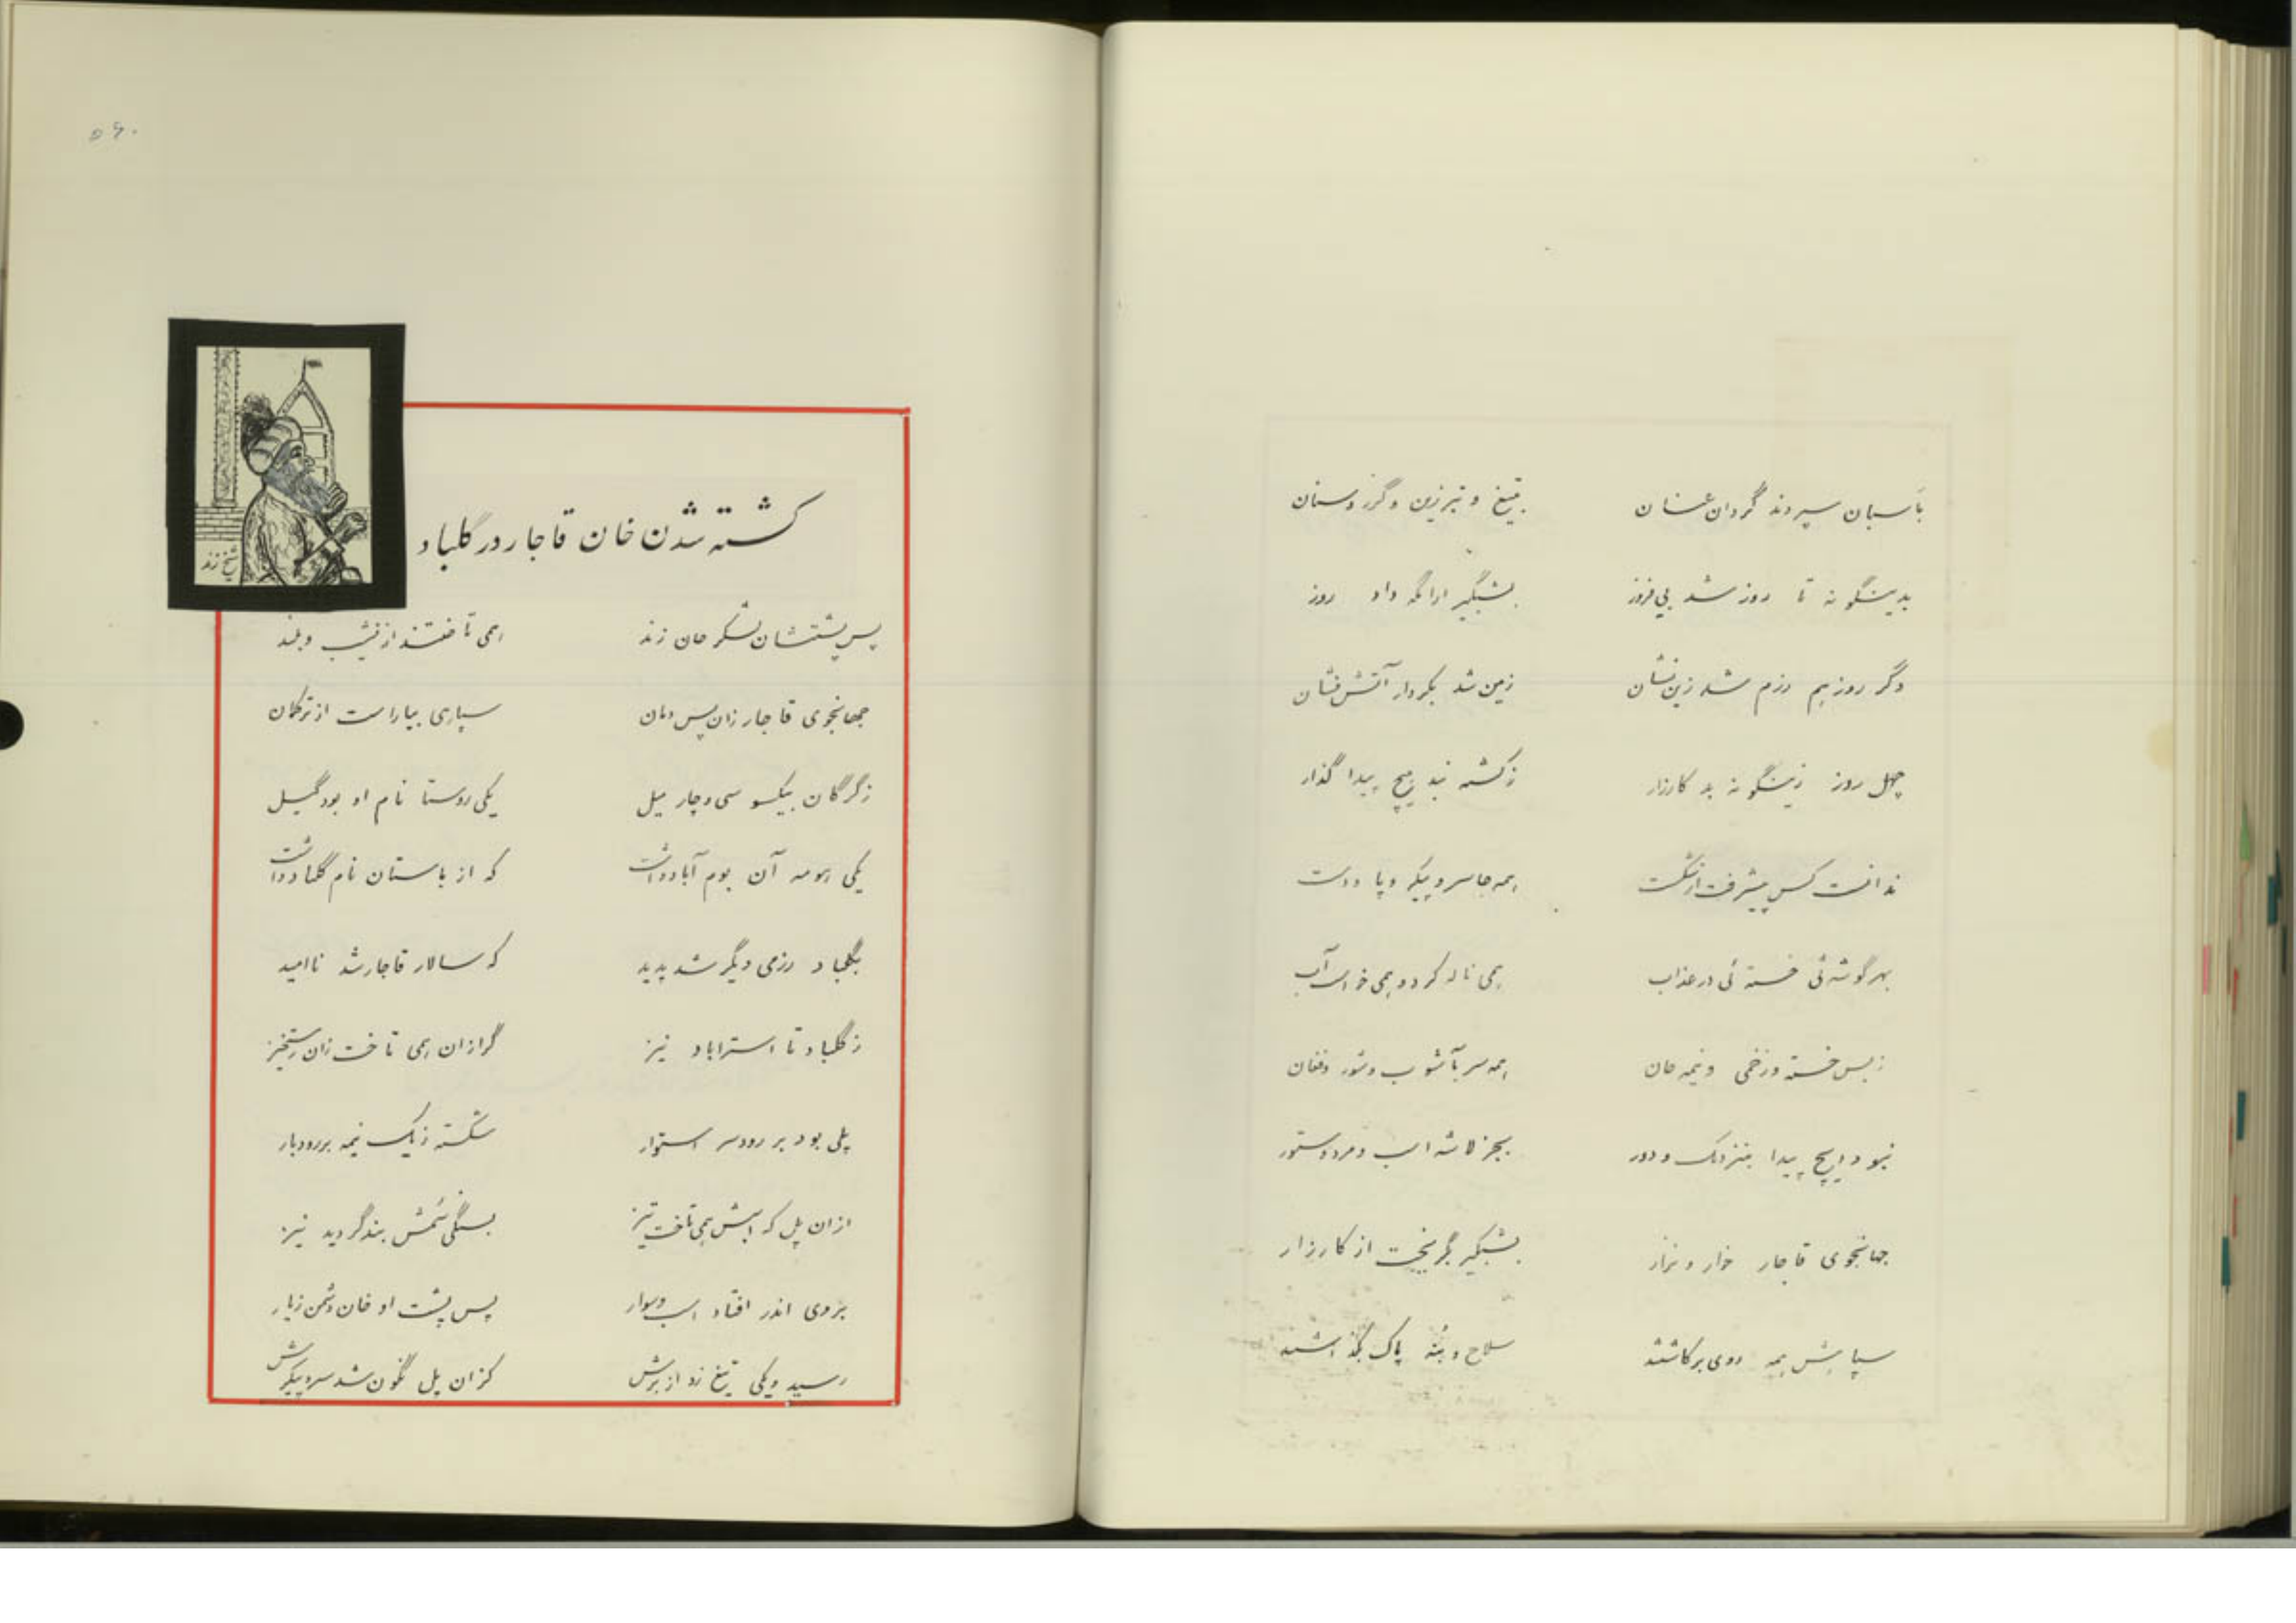 بآسبان سپردند گردان عنان    بتیغ و تبرزین و گرز و سنان
بدینگونه تا روز شد بی فروز    بشبگیر    داد روز
دگر روز هم رزم شد زین نشان    زمین شد بکردار آتش فشان
چهل روز زینگونه بد کارزار    ز کشته نبد هیچ پیدا گذار
ندانست کس پیشرفت از شکست    همه جا سر و پیکر و پا و دست
بهر گوشه ئی خسته ئی در عذاب    همی ناله کرد و همی خواست آب
ز بس خسته و زخمی و نیمه جان    همه سر بآشوب و شور و فغان
نبود ایچ پیدا بنزدیک و دور    بجز لاشه اسب و مرد و ستور
جهانجوی قاجار خوار و نزار    بشبگیر بگریخت از کارزار
سپاهش همه روی برکاشتند    سلاح و بنه پاک بگذاشتند
۵۶۰
شیخ زند
کشته شدن خان قاجار در گلباد
پس پشتشان لشکر خان زند    همی تاختند از نشیب و بلند
جهانجوی قاجار زان پس دمان    سپاهی بیاراست از ترکمان
ز گرگان بیکسو سی و چار میل    یکی روستا نام او بود گیل
یکی هومه آن بوم آباد داشت    که از باستان نام گلباد داشت
بگلباد رزمی دیگر شد پدید    که سالار قاجار شد ناامید
ز گلباد تا استراباد نیز    گرازان همی تاخت زان رستخیز
پلی بود بر رود سر استوار    شکسته ز یک نیمه بر رودبار
ازان پل که اسبش همی تاخت تیز    بسنگی سمش بند گردید نیز
بروی اندر افتاد اسب و سوار    پس پشت او خان دشمن زیار
رسید و یکی تیغ زد از برش    کزان پل نگون شد سر و پیکرش